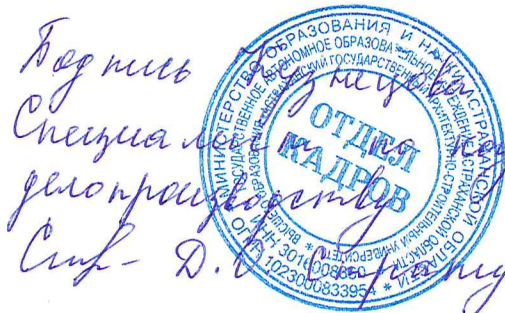 Подпись Кузнецова
Специалист по ка
делопроизводству
Д.О.
МИНИСТЕРСТВО ОБРАЗОВАНИЯ И НАУКИ АСТРАХАНСКОЙ ОБЛАСТИ
ГОСУДАРСТВЕННОЕ АВТОНОМНОЕ ОБРАЗОВАТЕЛЬНОЕ УЧРЕЖДЕНИЕ АСТРАХАНСКОЙ ОБЛАСТИ
ВЫСШЕГО ОБРАЗОВАНИЯ АСТРАХАНСКИЙ ГОСУДАРСТВЕННЫЙ АРХИТЕКТУРНО-СТРОИТЕЛЬНЫЙ УНИВЕРСИТЕТ
ОТДЕЛ
КАДРОВ
ИНН 3016008350
ОГРН 1023000833954